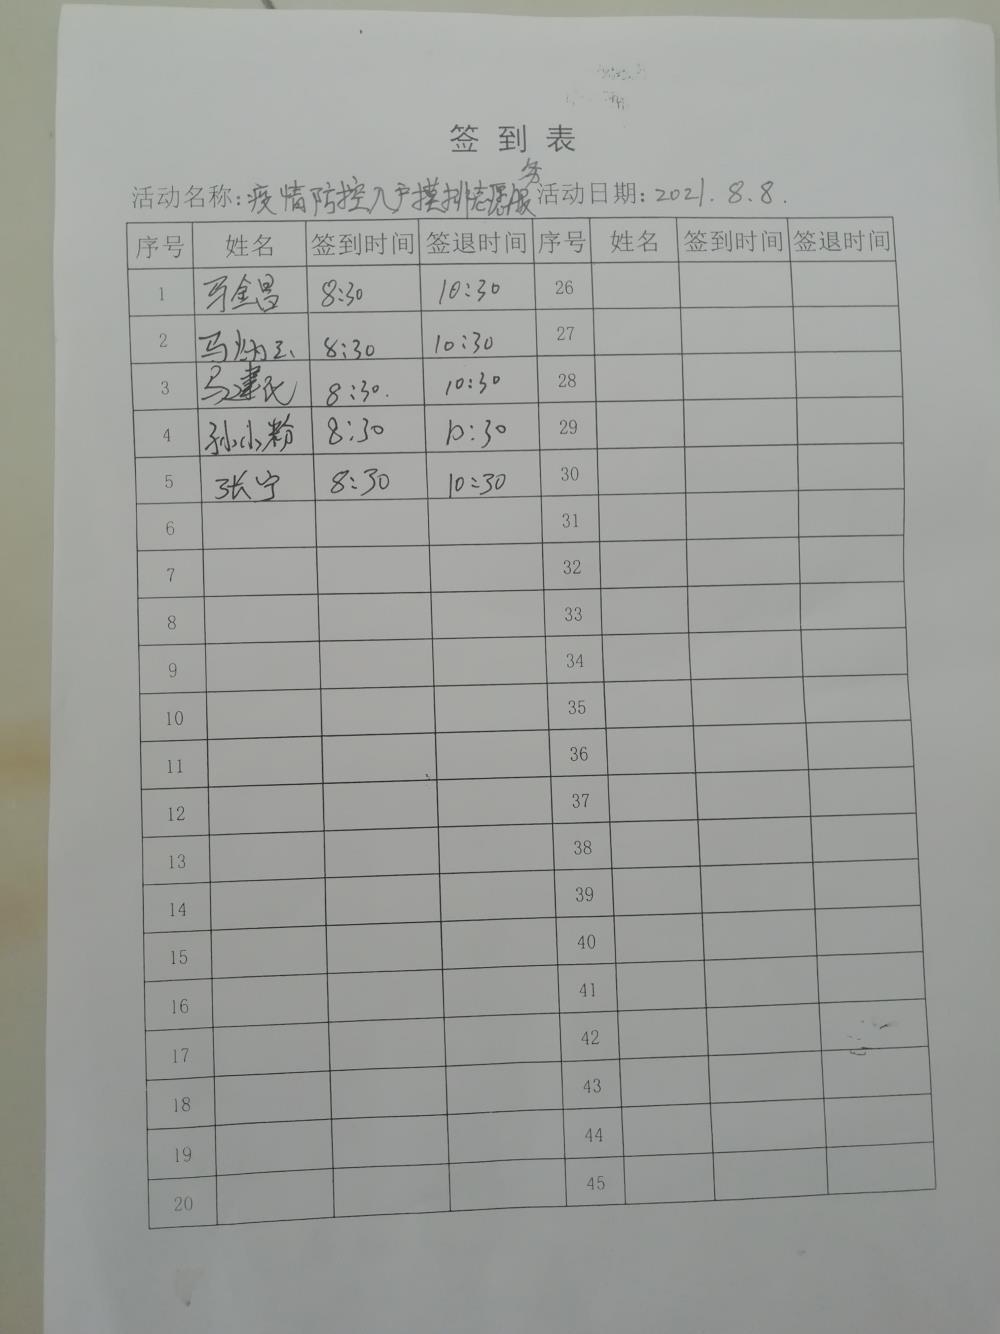 签到表
活动名称:疫情防控入户摸排志愿服务 活动日期:2021.8.8.
序号 姓名 签到时间 签退时间 序号 姓名 签到时间 签退时间
1 马金昌 8:30 10:30 26
2 马炳玉 8:30 10:30 27
3 马建民 8:30. 10:30 28
4 孙小粉 8:30 10:30 29
5 张宁 8:30 10:30 30
6 31
7 32
8 33
9 34
10 35
11 36
12 37
13 38
14 39
15 40
16 41
17 42
18 43
19 44
20 45